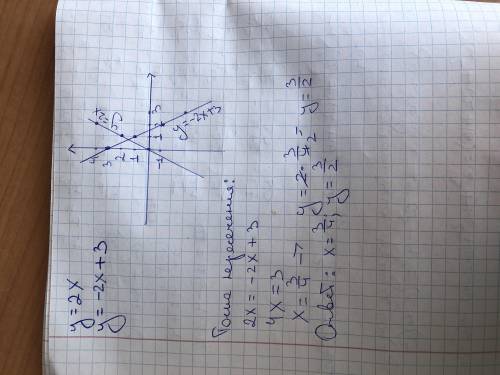 y = 2x
y = -2x + 3
4
3
2
1
-1
1
2
3
y=2x
y=-2x+3
Точка пересечения:
2x = -2x + 3
4x = 3
x = 3/4 → y = 2 · 3/4 2 = y = 3/2
Ответ: x = 3/4; y = 3/2